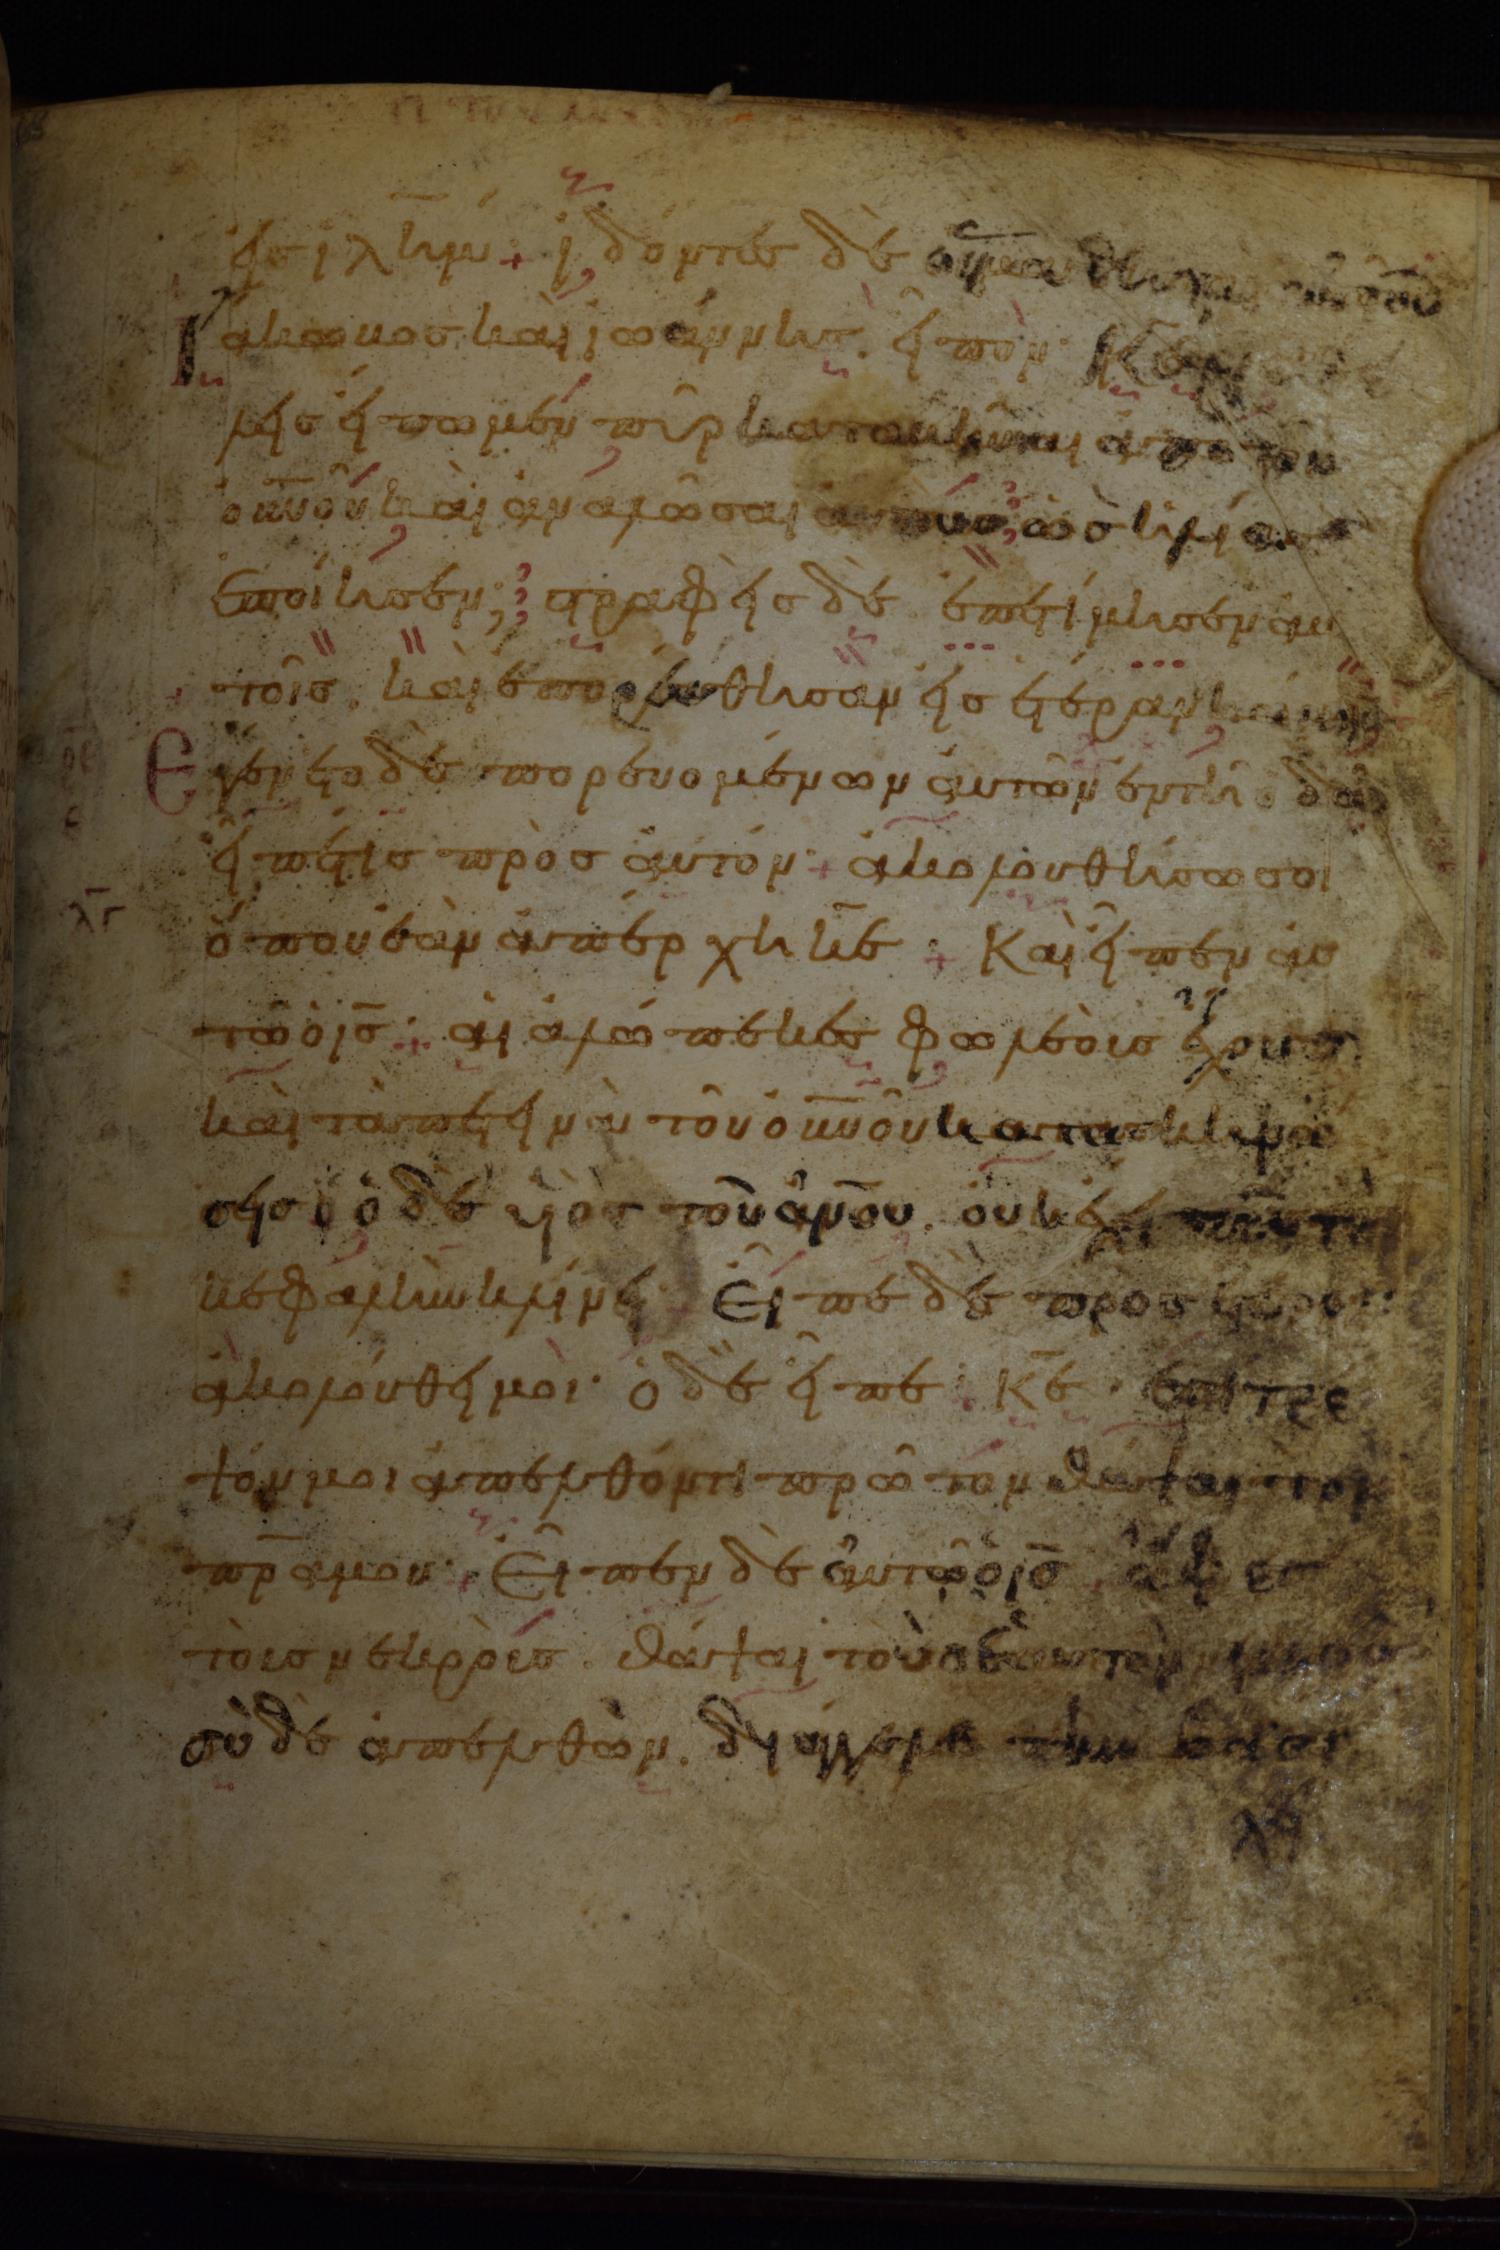 εἰσ ἱλῆμ + ἰδόντεσ δὲ οἱ μαθηταὶ αὐτοῦ
Ἰάκωβοσ καὶ ἰωάννησ. εἶπον· κ̅ε̅
λεισ εἴπωμεν πῦρ καταβῆναι ἀπὸ τοῦ
οὐ̅νοῦ καὶ ἀναλῶσαι αὐτούσ; ὡσ ἡλίασ
ἐποίησεν; στραφεὶσ δὲ ἐπετίμησεν αυ
τοῖσ. καὶ ἐπορεύθησαν εἰσ ἑτέραν κώμην
Εγένετο δὲ πορευομένων αὐτῶν ἐν τῆ ὁδῶ
εἶπέ τισ πρὸσ αὐτόν + ἀκολουθήσω σοι
ὅπου ἐὰν ἀπέρχη κ̅ε̅ + Καὶ εἶπεν αυ
τῶ ὁ ι̅σ̅ + αἱ ἀλώπεκεσ φωλεοὺσ ἔχουσι
καὶ τὰ πετεινὰ τοῦ οὐ̅νοῦ κατασκηνώ
σεισ· ὁ δὲ υἱὸσ τοῦ ἀν̅ου. οὐκ ἔχει ποῦ τὴν
κεφαλὴν κλίνει· Εἶπε δὲ προσ ἕτερον·
ἀκολούθει μοι· ὁ δὲ εἶπε· κ̅ε̅· ἐπίτρε
ψόν μοι ἀπελθόντι πρῶτον θάψαι τὸν
π̅ρ̅α μου· Εἶπεν δὲ αὐτῶ ὁ ι̅σ̅ ἄφεσ
τοὺσ νεκροὺσ. θάψαι τοὺσ ἑαυτῶν νεκρούσ
σὺ δὲ ἀπελθὼν. διάγγελε τὴν βασι